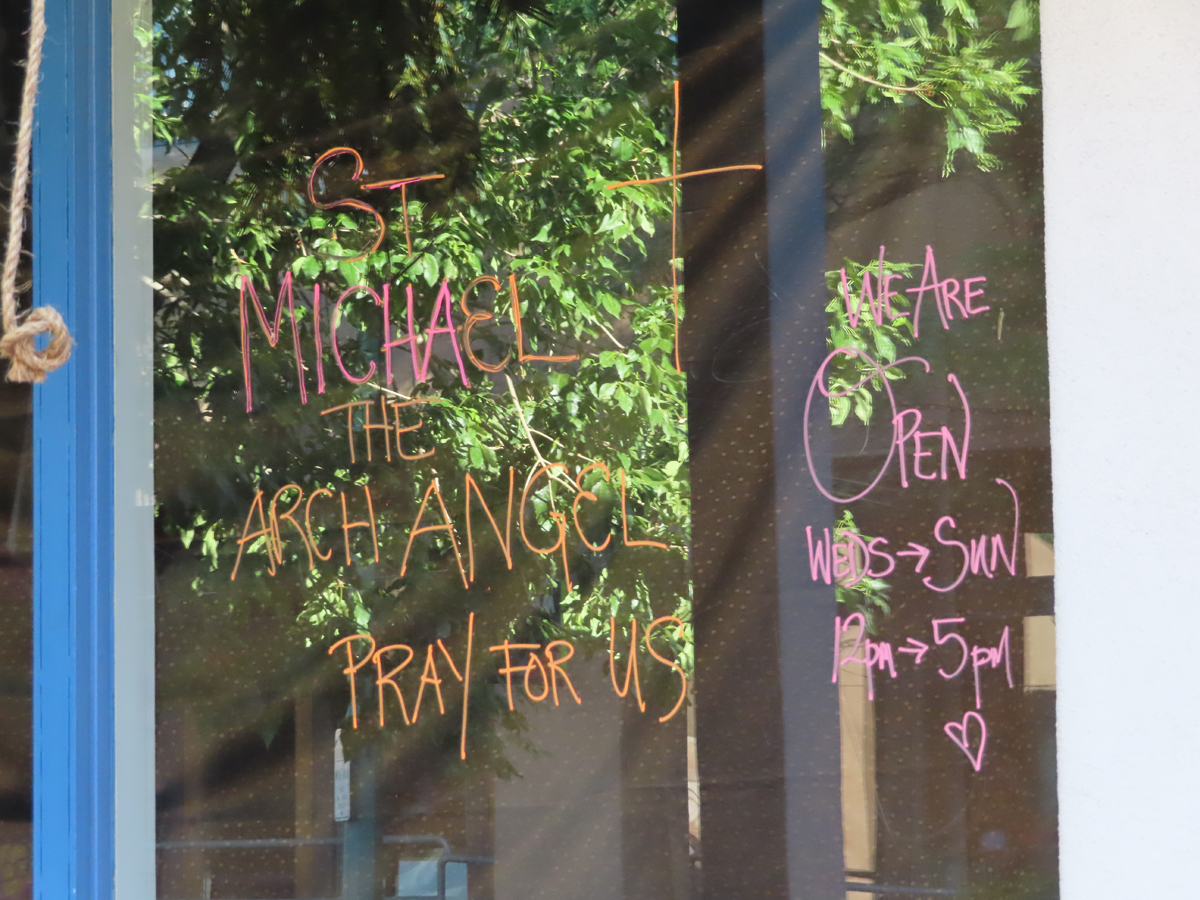 ST
MICHAEL
THE
ARCHANGEL
PRAY FOR US
WE ARE
OPEN
WEDS → SUN
12pm → 5pm
♡